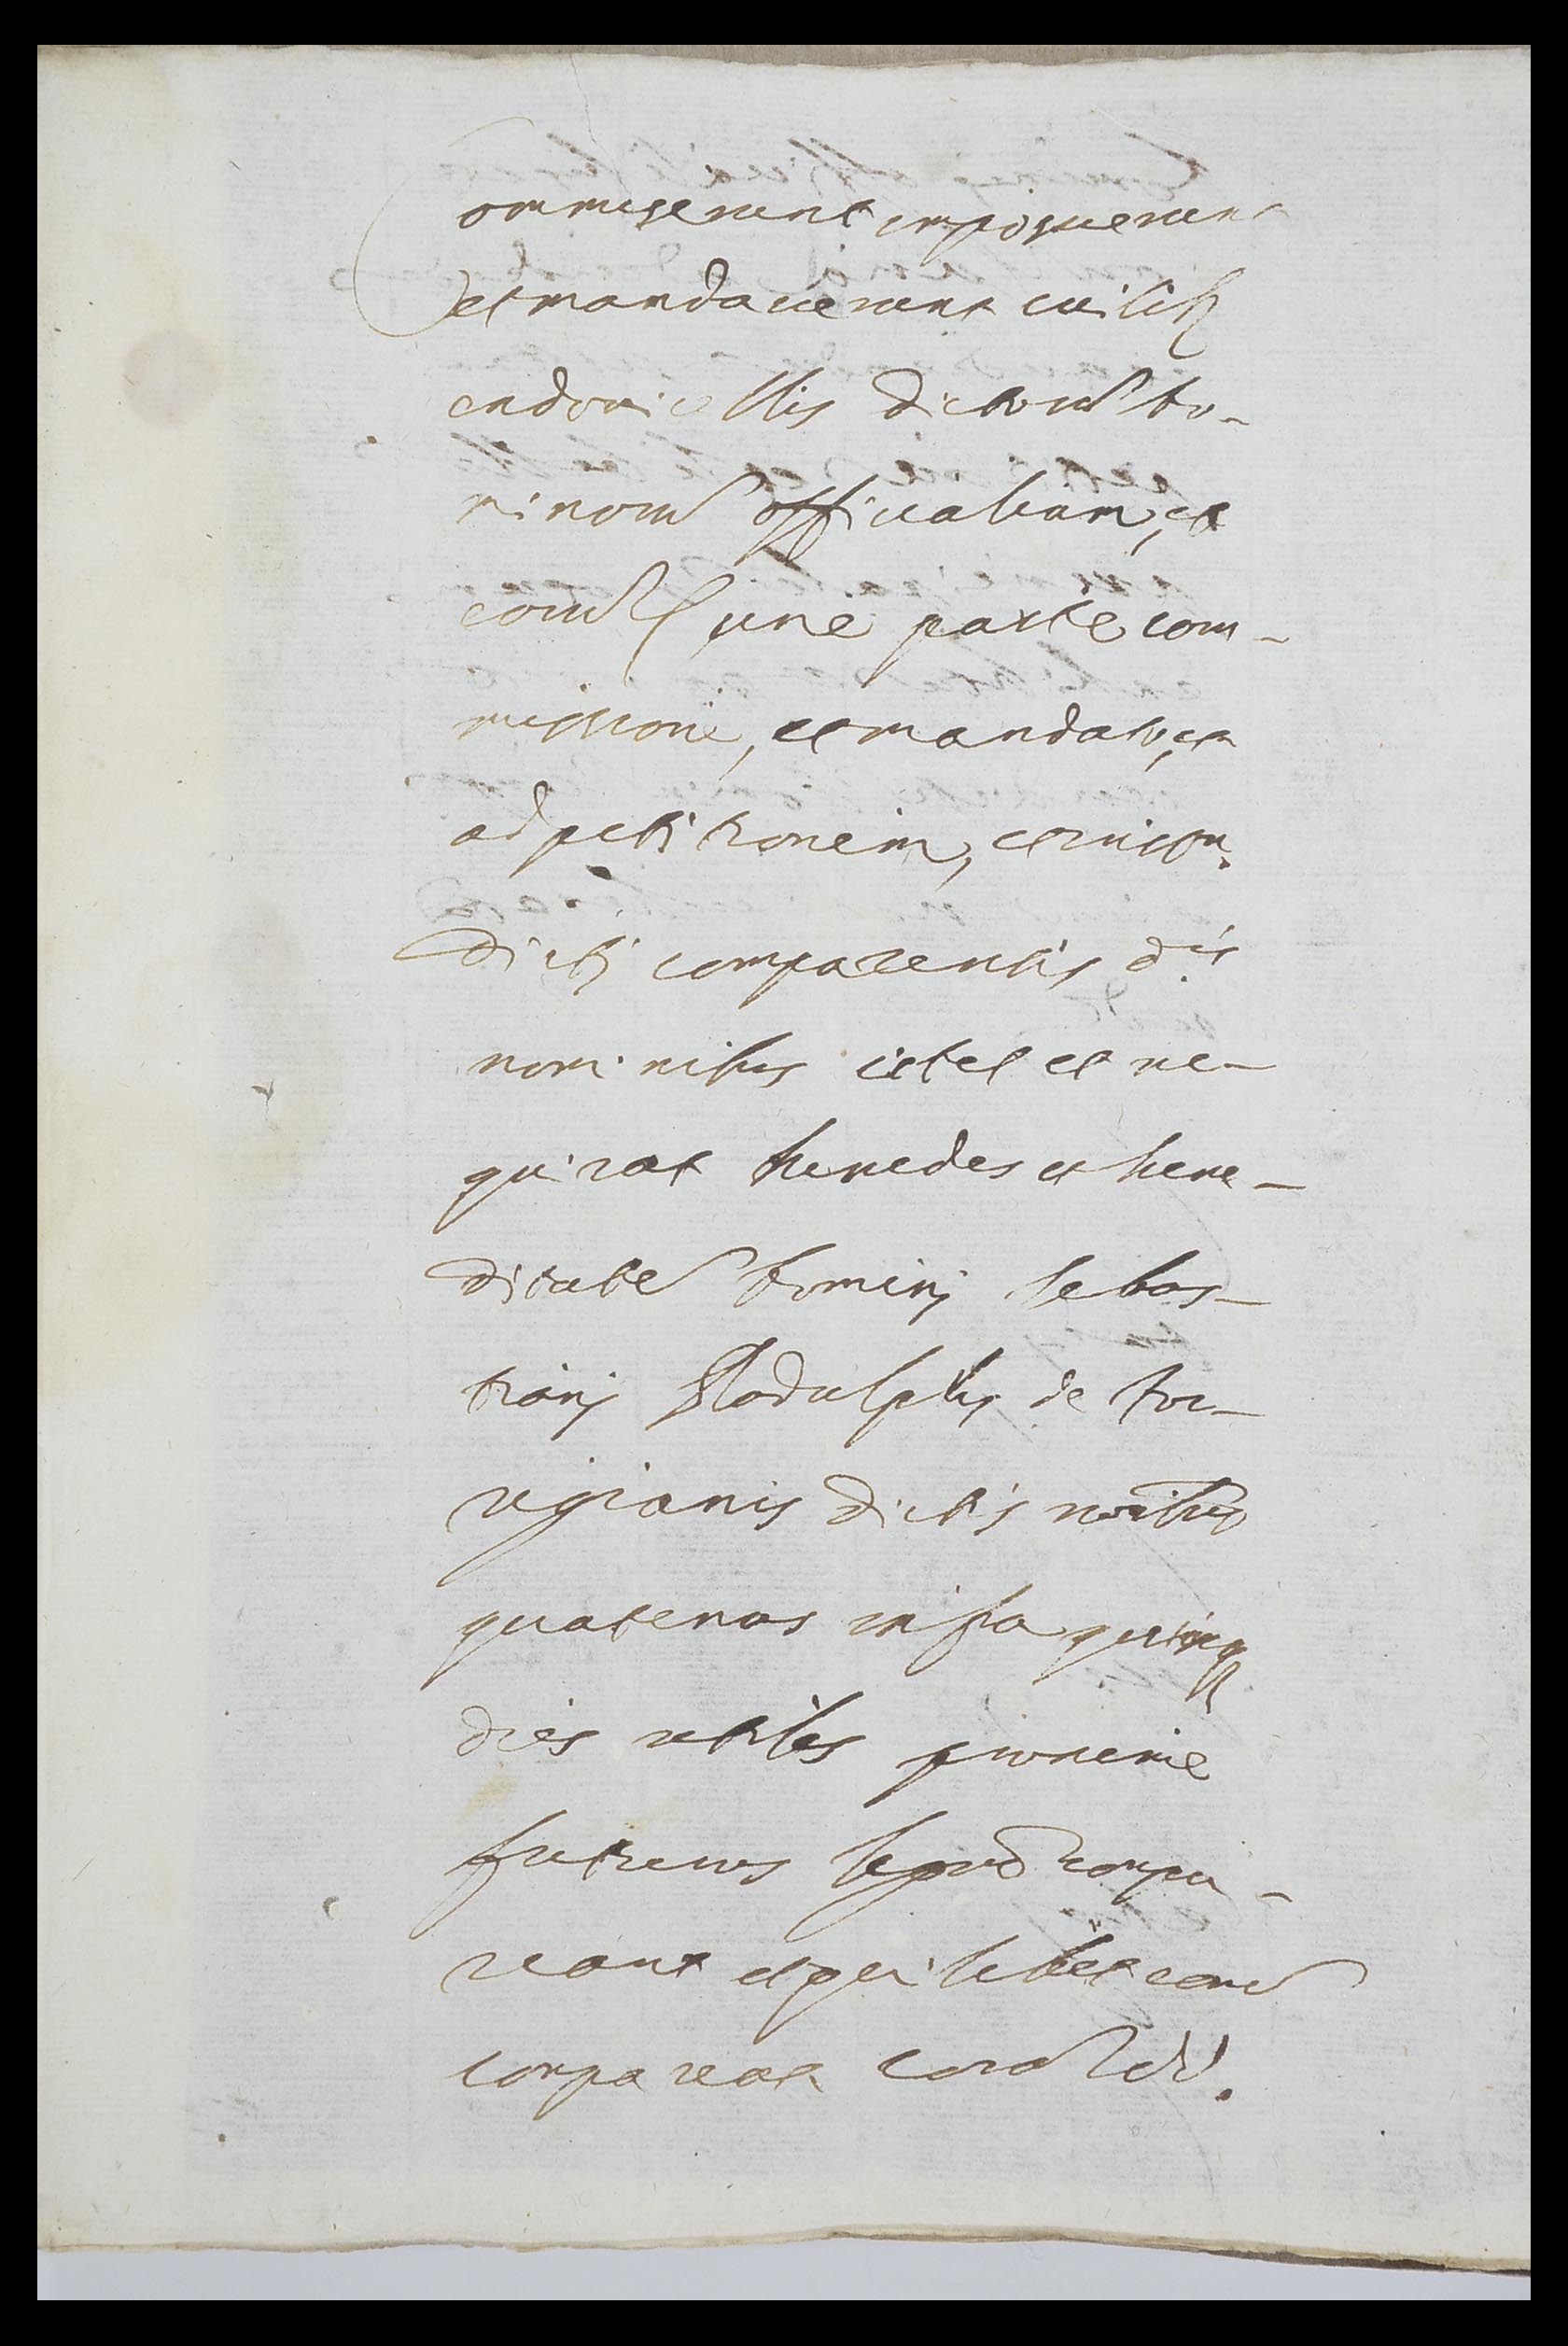 Commiserunt imposuerunt
et mandaverunt cuilib
ex domicellis dictorum do-
minorum officialium, et
eorum parte com-
missione, et mandato, et
ad petitionem, et
dicti comparentis dis
nominibus citet et re-
quirat heredes et here-
ditatem domini Sebas-
tiani Rodulphis de Tor-
regianis dictis noibus
quatenus infra quinq
dies utiles proxime
futuros compa-
reant et quilibet eorum
compareat coram